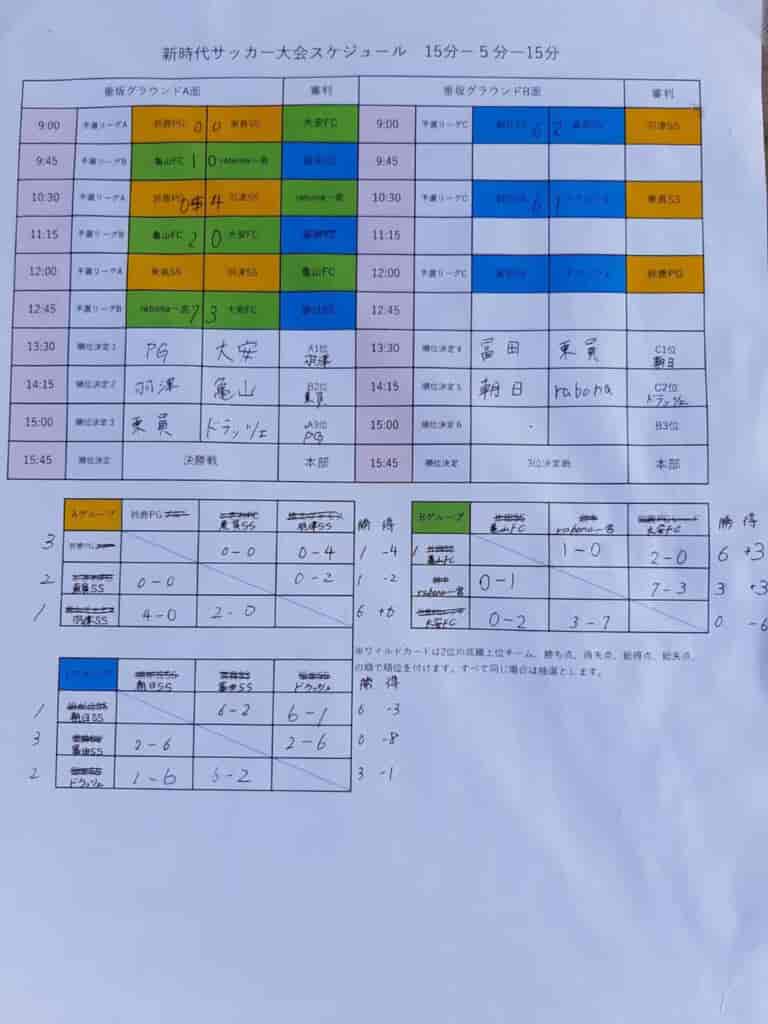 新時代サッカー大会スケジュール 15分－5分－15分
垂坂グラウンドA面 審判 垂坂グラウンドB面 審判
9:00 予選リーグA 鈴鹿PG 0 0 東員SS 大安FC 9:00 予選リーグC 6 2 羽津SS
9:45 予選リーグB 亀山FC 1 0 rabona一宮 9:45
10:30 予選リーグA 鈴鹿PG 0 4 羽津SS rabona一宮 10:30 予選リーグC 6 1 東員SS
11:15 予選リーグB 亀山FC 2 0 大安FC 11:15
12:00 予選リーグA 東員SS 羽津SS 亀山FC 12:00 予選リーグC 鈴鹿PG
12:45 予選リーグB rabona一宮 7 3 大安FC 12:45
13:30 順位決定1 PG 大安 A1位 羽津 13:30 順位決定4 冨田 東員 C1位 朝日
14:15 順位決定2 羽津 亀山 B2位 東員 14:15 順位決定5 朝日 rabona C2位 ドラッツェ
15:00 順位決定3 東員 ドラッツェ A3位 PG 15:00 順位決定6 B3位
15:45 順位決定 決勝戦 本部 15:45 順位決定 3位決定戦 本部
Aグループ 鈴鹿PG 東員SS 羽津SS 勝 得
3 鈴鹿PG 0-0 0-4 1 -4
2 東員SS 0-0 0-2 1 -2
1 羽津SS 4-0 2-0 6 +6
Bグループ 亀山FC rabona一宮 大安FC 勝 得
1 亀山FC 1-0 2-0 6 +3
rabona一宮 0-1 7-3 3 +3
大安FC 0-2 3-7 0 -6
※ワイルドカードは2位の成績上位チーム。勝ち点、得失点、総得点、総失点、
の順で順位を付けます。すべて同じ場合は抽選とします。
朝日SS 冨田SS ドラッツェ 勝 得
1 朝日SS 6-2 6-1 6 -3
3 冨田SS 2-6 2-6 0 -8
2 ドラッツェ 1-6 -2 3 -1